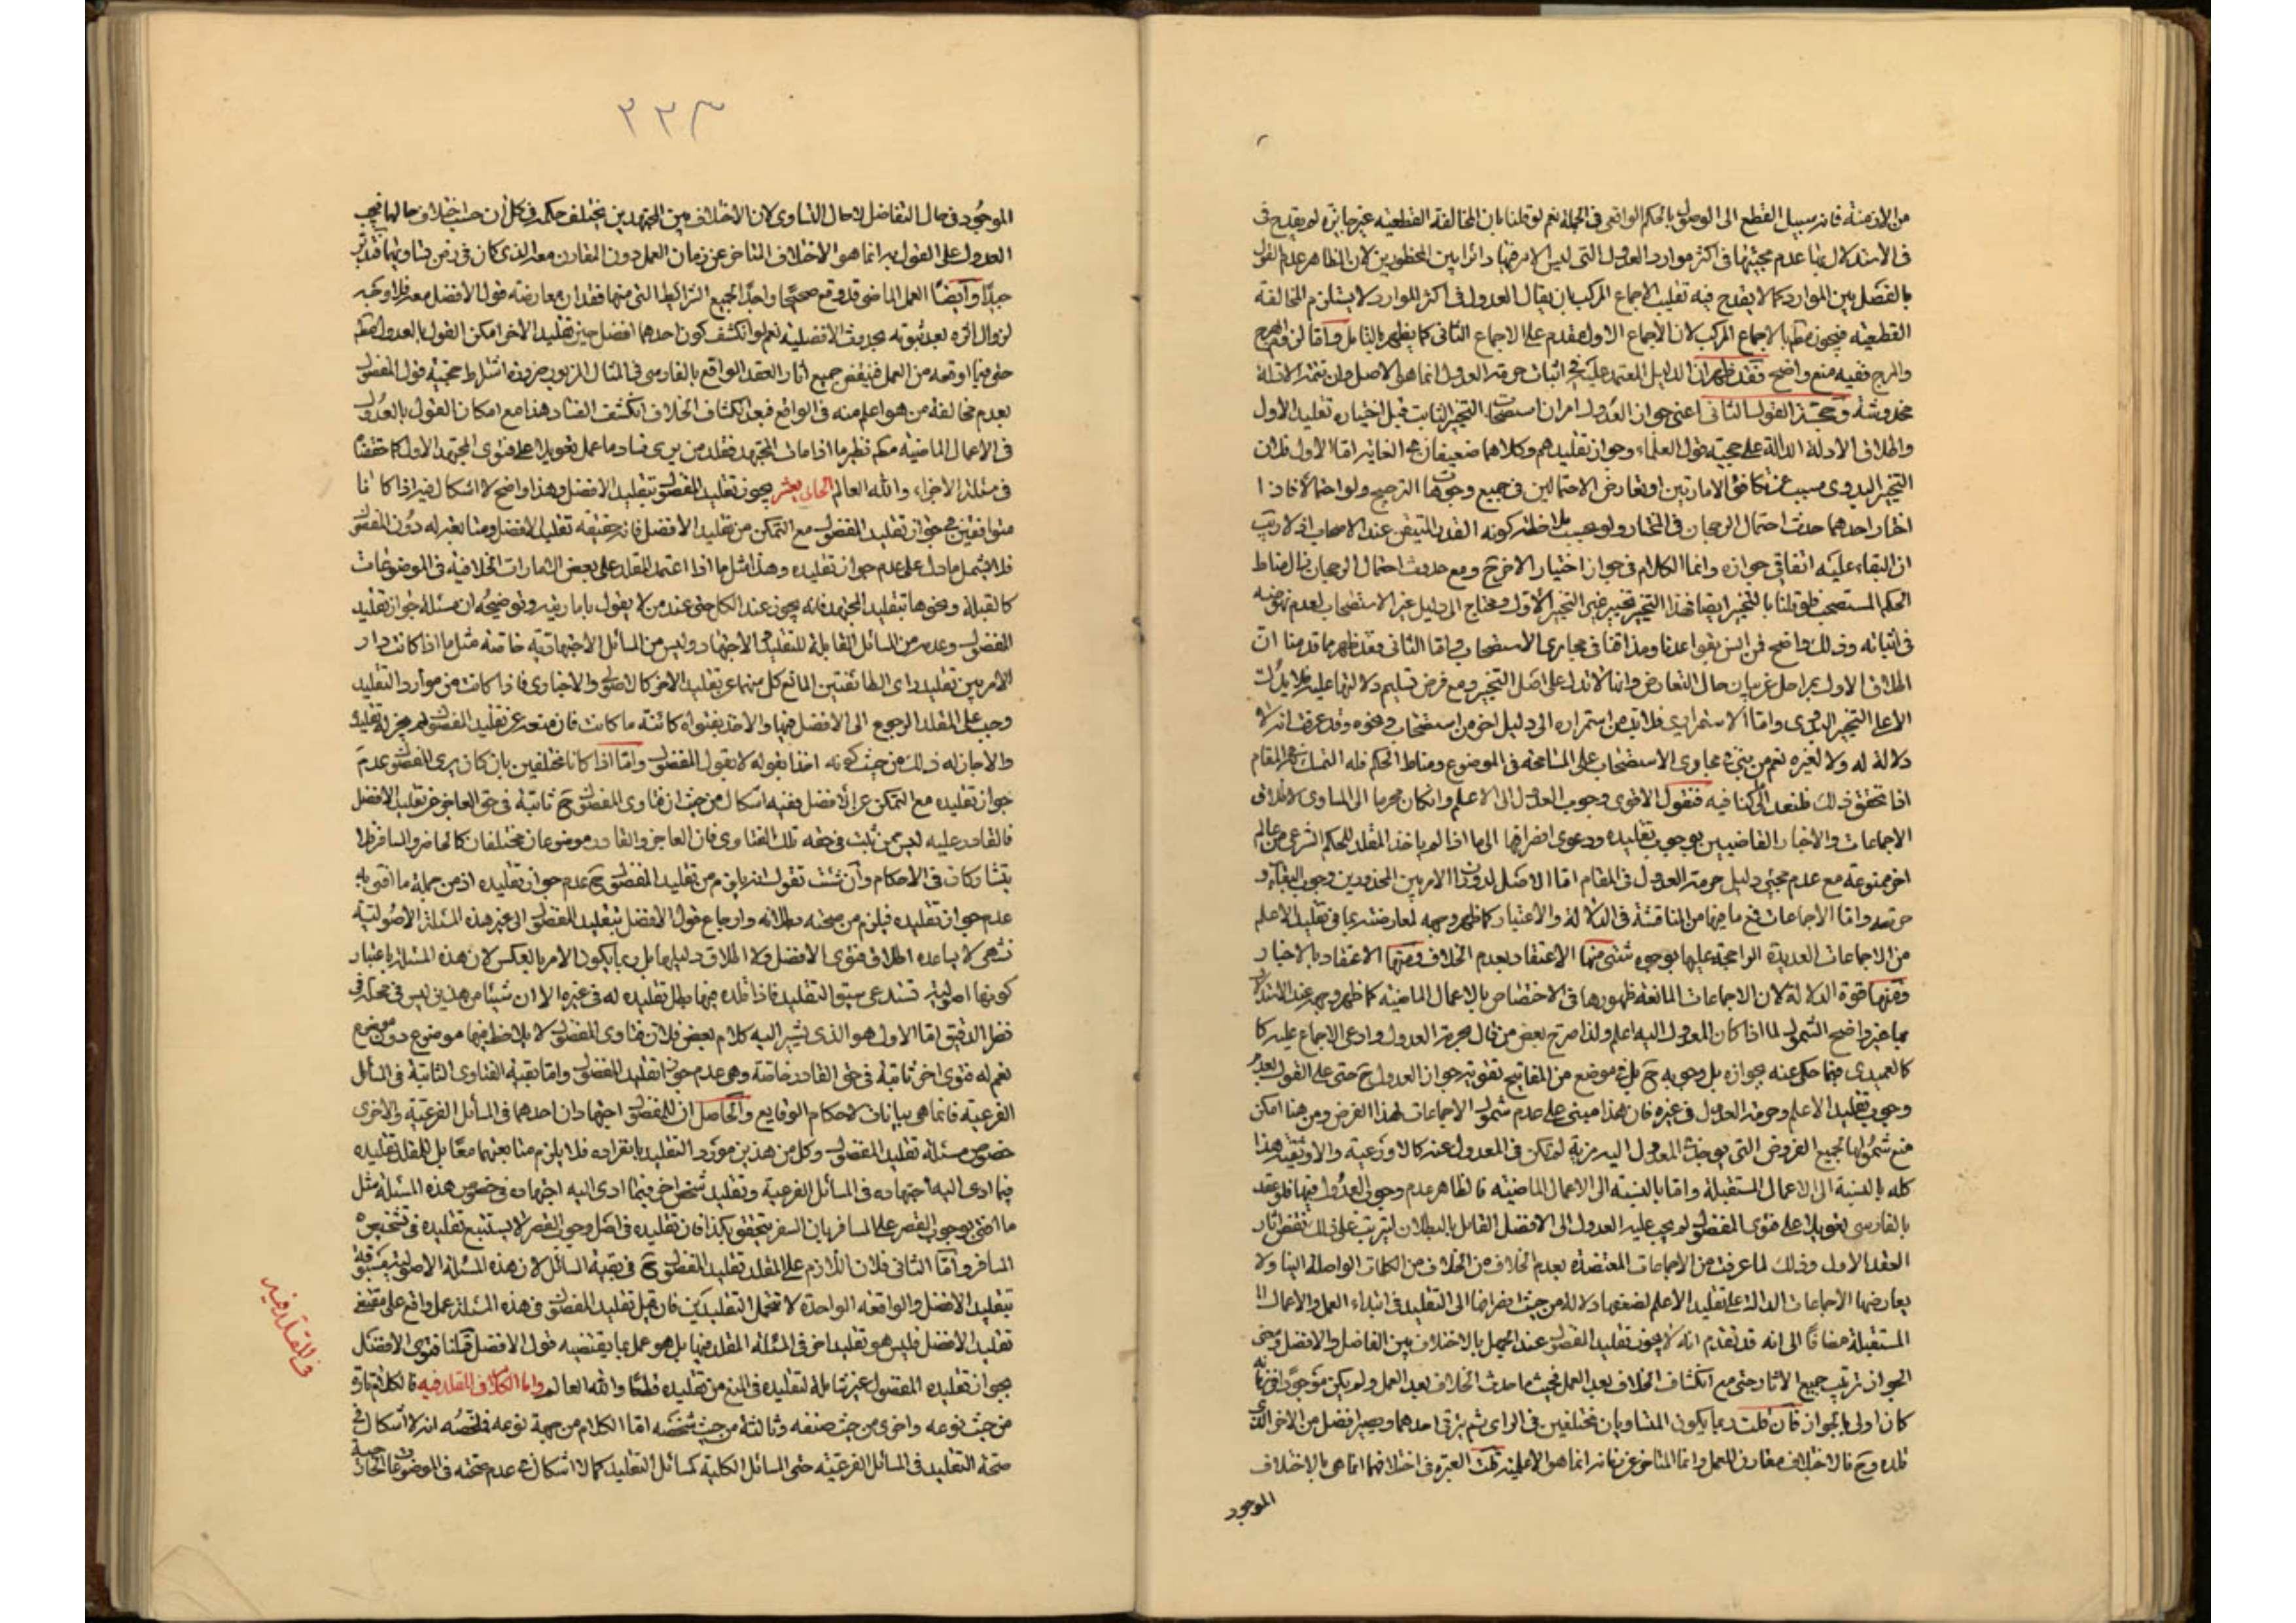 من الازمنة فانه سبيل القطع الى الوصول بالحكم الواقعى فى الجملة نعم لو قلنا بان المخالفة القطعيه غير جايزه لم يقدح فى
فى الاستدلال بها عدم مجيئها فى اكثر موارد العدول التى ليس الامر فيها دائرا بين المحظورين لان الظاهر عدم القول
بالفصل بين الموارد كما لا يقدح فيه تقليب الاجماع المركب بان يقال العدول فى اكثر الموارد لا يستلزم المخالفة
القطعيه فيجوز مطم بالاجماع المركب لان الاجماع الاول مقدم على الاجماع الثانى كما يظهر بالتامل واما لزوم الهرج
والمرج ففيه منع واضح فقد ظهر ان الدليل المعتمد عليه فى اثبات حرمة العدول انما هو الاصل وان بقية الادلة
مخدوشة وحجة القول الثانى اعنى جواز العدول امران استصحاب التخير الثابت قبل اختياره تقليد الاول
واطلاق الادلة الدالة على حجية قول العلماء وجواز تقليدهم وكلاهما ضعيفان فى الغاية اما الاول فلان
التخير البدوى سبب عن تكافؤ الامارتين او تعارض الاحتمالين فى جميع وجوه الترجيح ولو احتمالا فاذا
اختار احدهما حدث احتمال الرجحان فى المختار ولو بحسب ملاحظة كونه القدر المتيقن عند الاصحاب اذ لا ريب
ان البقاء عليه اتفاقى جوازه وانما الكلام فى جواز اختيار الاخر ح ومع حدوث احتمال الرجحان زال مناط
الحكم المستصحب فلو قلنا بالتخير ايضا فهذا التخير تخيير غير التخير الاول ومحتاج الى دليل غير الاستصحاب لعدم نهوضه
فى اثباته وذلك واضح لمن انس بقواعدنا ومذاقنا فى مجارى الاستصحاب واما الثانى فقد ظهر مما قدمنا ان
اطلاق الاول بمراحل عن بيان حال التعارض وانها لا تدل على اصل التخير ومع فرض تسليم دلالتها عليه فلا يدلت
الا على التخير البدوى واما الاستمرارى فلا بد من استمراره الى دليل اخر من استصحاب ونحوه وقد عرفت انه لا
دلالة له ولا لغيره نعم من بنى فى مجارى الاستصحاب على المسامحة فى الموضوع ومناط الحكم فله التمسك به فى المقام
اذا تحقق ذلك فلنعد الى ما كنا فيه فنقول الاقوى وجوب العدول الى الاعلم وان كان محرما الى المساوى لاطلاق
الاجماعات والاخبار القاضيين بوجوب تقليده ودعوى انصرافها الى ما اذا لم ياخذ المقلد للحكم الشرعى من عالم
اخر ممنوعة مع عدم مجيئى دليل حرمة العدول فى المقام اما الاصل لدوران الامر بين المحذورين وجوب البقاء و
حرمته واما الاجماعات فمع ما فيها من المناقشة فى الدلالة والاعتبار كما ظهر وجهه لمعارضتها بما فى تقليد الاعلم
من الاجماعات العديدة الراجحة عليها بوجوه شتى منها الاعتضاد بعدم الخلاف ومنها الاعتضاد بالاخبار
ومنها قوة الدلالة لان الاجماعات المانعة ظهورها فى الاختصاص بالاعمال الماضيه كما ظهر وجهه عند الاستدلال
بها غير واضح الشمول لما اذا كان المعدول اليه اعلم ولذا صرح بعض من قال بحرمة العدول وادعى الاجماع عليه كا
كالعميدى فيما حكى عنه بجوازه بل وجوبه ح بل فى موضع من المفاتيح تقويته جواز العدول ح حتى على القول بعدم
وجوب تقليد الاعلم وحرمة العدول فى غيره فان هذا مبنى على عدم شمول الاجماعات لهذا الفرض ومن هنا امكن
منع شمولها لجميع الفروض التى يوجد فى المعدول اليه مزية لم تكن فى المعدول عنه كالاورعية والاوثقية هذا
كله بالنسبة الى الاعمال المستقبلة واما بالنسبة الى الاعمال الماضيه فالظاهر عدم وجوب العدول فيها فلو عقد
بالفارسى تعويلا على فتوى المفضول لم يجب عليه العدول الى الافضل القائل بالبطلان ليترتب على ذلك نقض اثار
العقد الاول وذلك لما عرفت من الاجماعات المعتضدة بعدم الخلاف من الخلاف من الكلمات الواصلة الينا ولا
يعارضها الاجماعات الدالة على تقليد الاعلم لضعفها دلالة من حيث انصرافها الى التقليد فى ابتداء العمل والاعمال
المستقبلة مضافا الى انه قد تقدم انه لا يجوز تقليد المفضول عند الجهل بالاختلاف بين الفاضل والافضل ومقتضى
الجواز ترتيب جميع الاثار حتى مع انكشاف الخلاف بعد العمل فحيث ما حدث الخلاف بعد العمل ولم يكن موجودا فى زمانه
كان اولى بالجواز فان قلت ربما يكون المتساويان مختلفين فى الراى ثم يترقى احدهما ويصير افضل من الاخر الذى
قلده وح فالاختلاف مقارن للعمل وانما المتاخر عن زمانه انما هو الاعلمية قلت العبرة فى اختلافهما انما هى بالاختلاف
الموجود
٢٢٣
الموجود فى حال التفاضل لا حال التساوى لان الاختلاف بين المجتهدين يختلف حكمه فى كل ان حسب اختلاف حالهما فيجب
العدول على القول به انما هو الاختلاف المتاخر عن زمان العمل دون المقارن معه الذى كان فى زمن تساويهما فتدبر
جيدا وايضا العمل الماضى قد وقع صحيحا واجدا لجميع الشرائط التى منها فقدان معارضة قول الافضل معه فلا وجه
لزوال اثره بعد ثبوته بحدوث الافضلية نعم لو انكشف كون احدهما افضل حين تقليد الاخر امكن القول بالعدول مطم
حتى فيما اوقعه من العمل فينقض جميع اثار العقد الواقع بالفارسى فى المثال المزبور ضرورة اشتراط حجية قول المفضول
بعدم مخالفة من هو اعلم منه فى الواقع فبعد انكشاف الخلاف انكشف الفساد هذا مع امكان القول بالعدول
فى الاعمال الماضيه مطم نظير ما اذا مات المجتهد فقلد من يرى فساد ما عمل تعويلا على فتوى المجتهد الاول كما حققنا
فى مسئلة الاجزاء والله العالم الحادى عشر يجوز تقليد المفضول بتقليد الافضل وهذا واضح لا اشكال فيه اذا كانا
متوافقين فى جواز تقليد المفضول مع التمكن من تقليد الافضل فانه حقيقة تقليد للافضل ومتابعة له دون المفضول
فلا يشمل ما دل على عدم جواز تقليده وهذا مثل ما اذا اعتمد المقلد على بعض الامارات الخلافية فى الموضوعات
كالقبلة ونحوها بتقليد المجتهد فانه يجوز عند الكل حتى عند من لا يقول باماريته وتوضيحه ان مسئلة جواز تقليد
المفضول وعدمه من المسائل القابلة للتقليد والاجتهاد وليس من المسائل الاجتهادية خاصة مثل ما اذا كانت دار
الامر بين تقليد راى الطائفتين المانع كل منهما عن تقليد الاخر كالاصولى والاخبارى فاذا كانت من موارد التقليد
وجب على المقلد الرجوع الى الافضل فيها والاخذ بفتواه كائنة ما كانت فان منعه عن تقليد المفضول لم يجز له تقليده
والا جاز له ذلك من حيث كونه اخذا بقوله لا بقول المفضول واما اذا كانا مختلفين بان كان يرى المفضول عدم
جواز تقليده مع التمكن عن الافضل ففيه اشكال من حيث ان فتاوى المفضول ح ثابتة فى حق العاجز عن تقليد الافضل
فالقادر عليه ليس ممن ثبت فى حقه تلك الفتاوى فان العاجز والقادر موضوعان مختلفان كالحاضر والمسافر فلا
يتشاركان فى الاحكام وان شئت تقول انه يلزم من تقليد المفضول ح عدم جواز تقليده اذ من جملة ما افتى به
عدم جواز تقليده فيلزم من صحته بطلانه وارجاع قول الافضل بتقليد المفضول الى غير هذه المسئلة الاصولية
تشهى لا يساعده اطلاق فتوى الافضل ولا اطلاق دليلها بل ربما يكون الامر بالعكس لان هذه المسئلة باعتبار
كونها اصولية تستدعى سبق التقليد فاذا قلده فيها بطل تقليده له فى غيره الا ان شيئا من هذين ليس فى محله فى
نظر الدقيق اما الاول هو الذى يشير اليه كلام بعض فلان فتاوى المفضول لا يلاحظ فيها موضوع دون موضوع
نعم له فتوى اخر ثابتة فى حق القادر خاصة وهى عدم جواز تقليد المفضول واما بقية الفتاوى الثابتة فى المسائل
الفرعية فانما هى بيانات لاحكام الوقايع والحاصل ان للمفضول اجتهادان احدهما فى المسائل الفرعية والاخرى
خصوص مسئلة تقليد المفضول وكل من هذين مورد التقليد بانفراده فلا يلزم متابعتهما معا بل للمقلد تقليده
فيما ادى اليه اجتهاده فى المسائل الفرعية وتقليد شخص اخر فيما ادى اليه اجتهاده فى خصوص هذه المسئلة مثل
ما افتى بوجوب القصر على المسافر بان السفر يتحقق بكذا فان تقليده فى اصل وجوب القصر لا يستتبع تقليده فى تشخيص
المسافر واما الثانى فلان اللازم على المقلد تقليد المفضول ح فى بقية المسائل لان هذه المسئلة الاصولية مسبوقة
بتقليد الافضل والواقعة الواحدة لا تتحمل التقليدين فان قبل تقليد المفضول فى هذه المسئلة عمل واقع على مقتضى
تقليد الافضل فليس هو تقليد اخر فى المسئلة المقلد فيها بل هو عمل بما يقتضيه قول الافضل قلنا فتوى الافضل
بجواز تقليده المفضول غير شاملة لتقليده فى المنع من تقليده قطعا والله العالم واما الكلام فى المقلد فيه فالكلام تارة
من حيث نوعه واخرى من حيث صنفه وثالثة من حيث شخصه اما الكلام من جهة نوعه فملخصه انه لا اشكال فى
صحة التقليد فى المسائل الفرعيه حتى المسائل الكلية كمسائل التقليد كما لا اشكال فى عدم صحته فى الموضوعات الخارجية
فى المقلد فيه